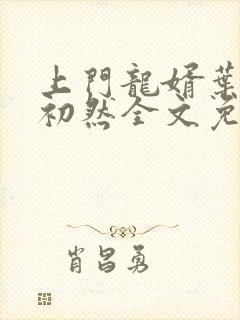 上門龍婿葉
初然全文免
肖昌勇